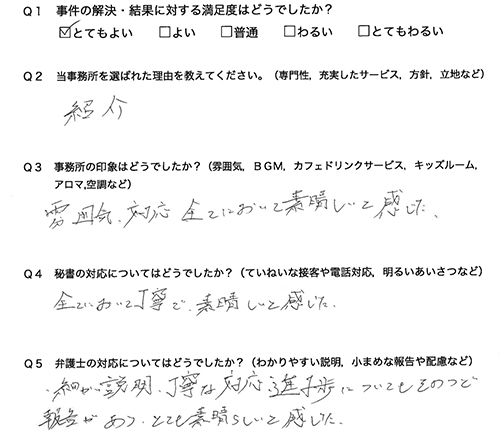 Q1 事件の解決・結果に対する満足度はどうでしたか?
☑とてもよい □よい □普通 □わるい □とてもわるい
Q2 当事務所を選ばれた理由を教えてください。(専門性，充実したサービス，方針，立地など)
紹介
Q3 事務所の印象はどうでしたか?(雰囲気，BGM，カフェドリンクサービス，キッズルーム，
アロマ,空調など)
雰囲気、対応 全てにおいて素晴しいと感じた、
Q4 秘書の対応についてはどうでしたか?(ていねいな接客や電話対応，明るいあいさつなど)
全てにおいて丁寧で、素晴しいと感じた、
Q5 弁護士の対応についてはどうでしたか?(わかりやすい説明，小まめな報告や配慮など)
、細かい説明、丁寧な対応 進歩についてもそのつど
報告があり、とても素晴らしいと感じた、